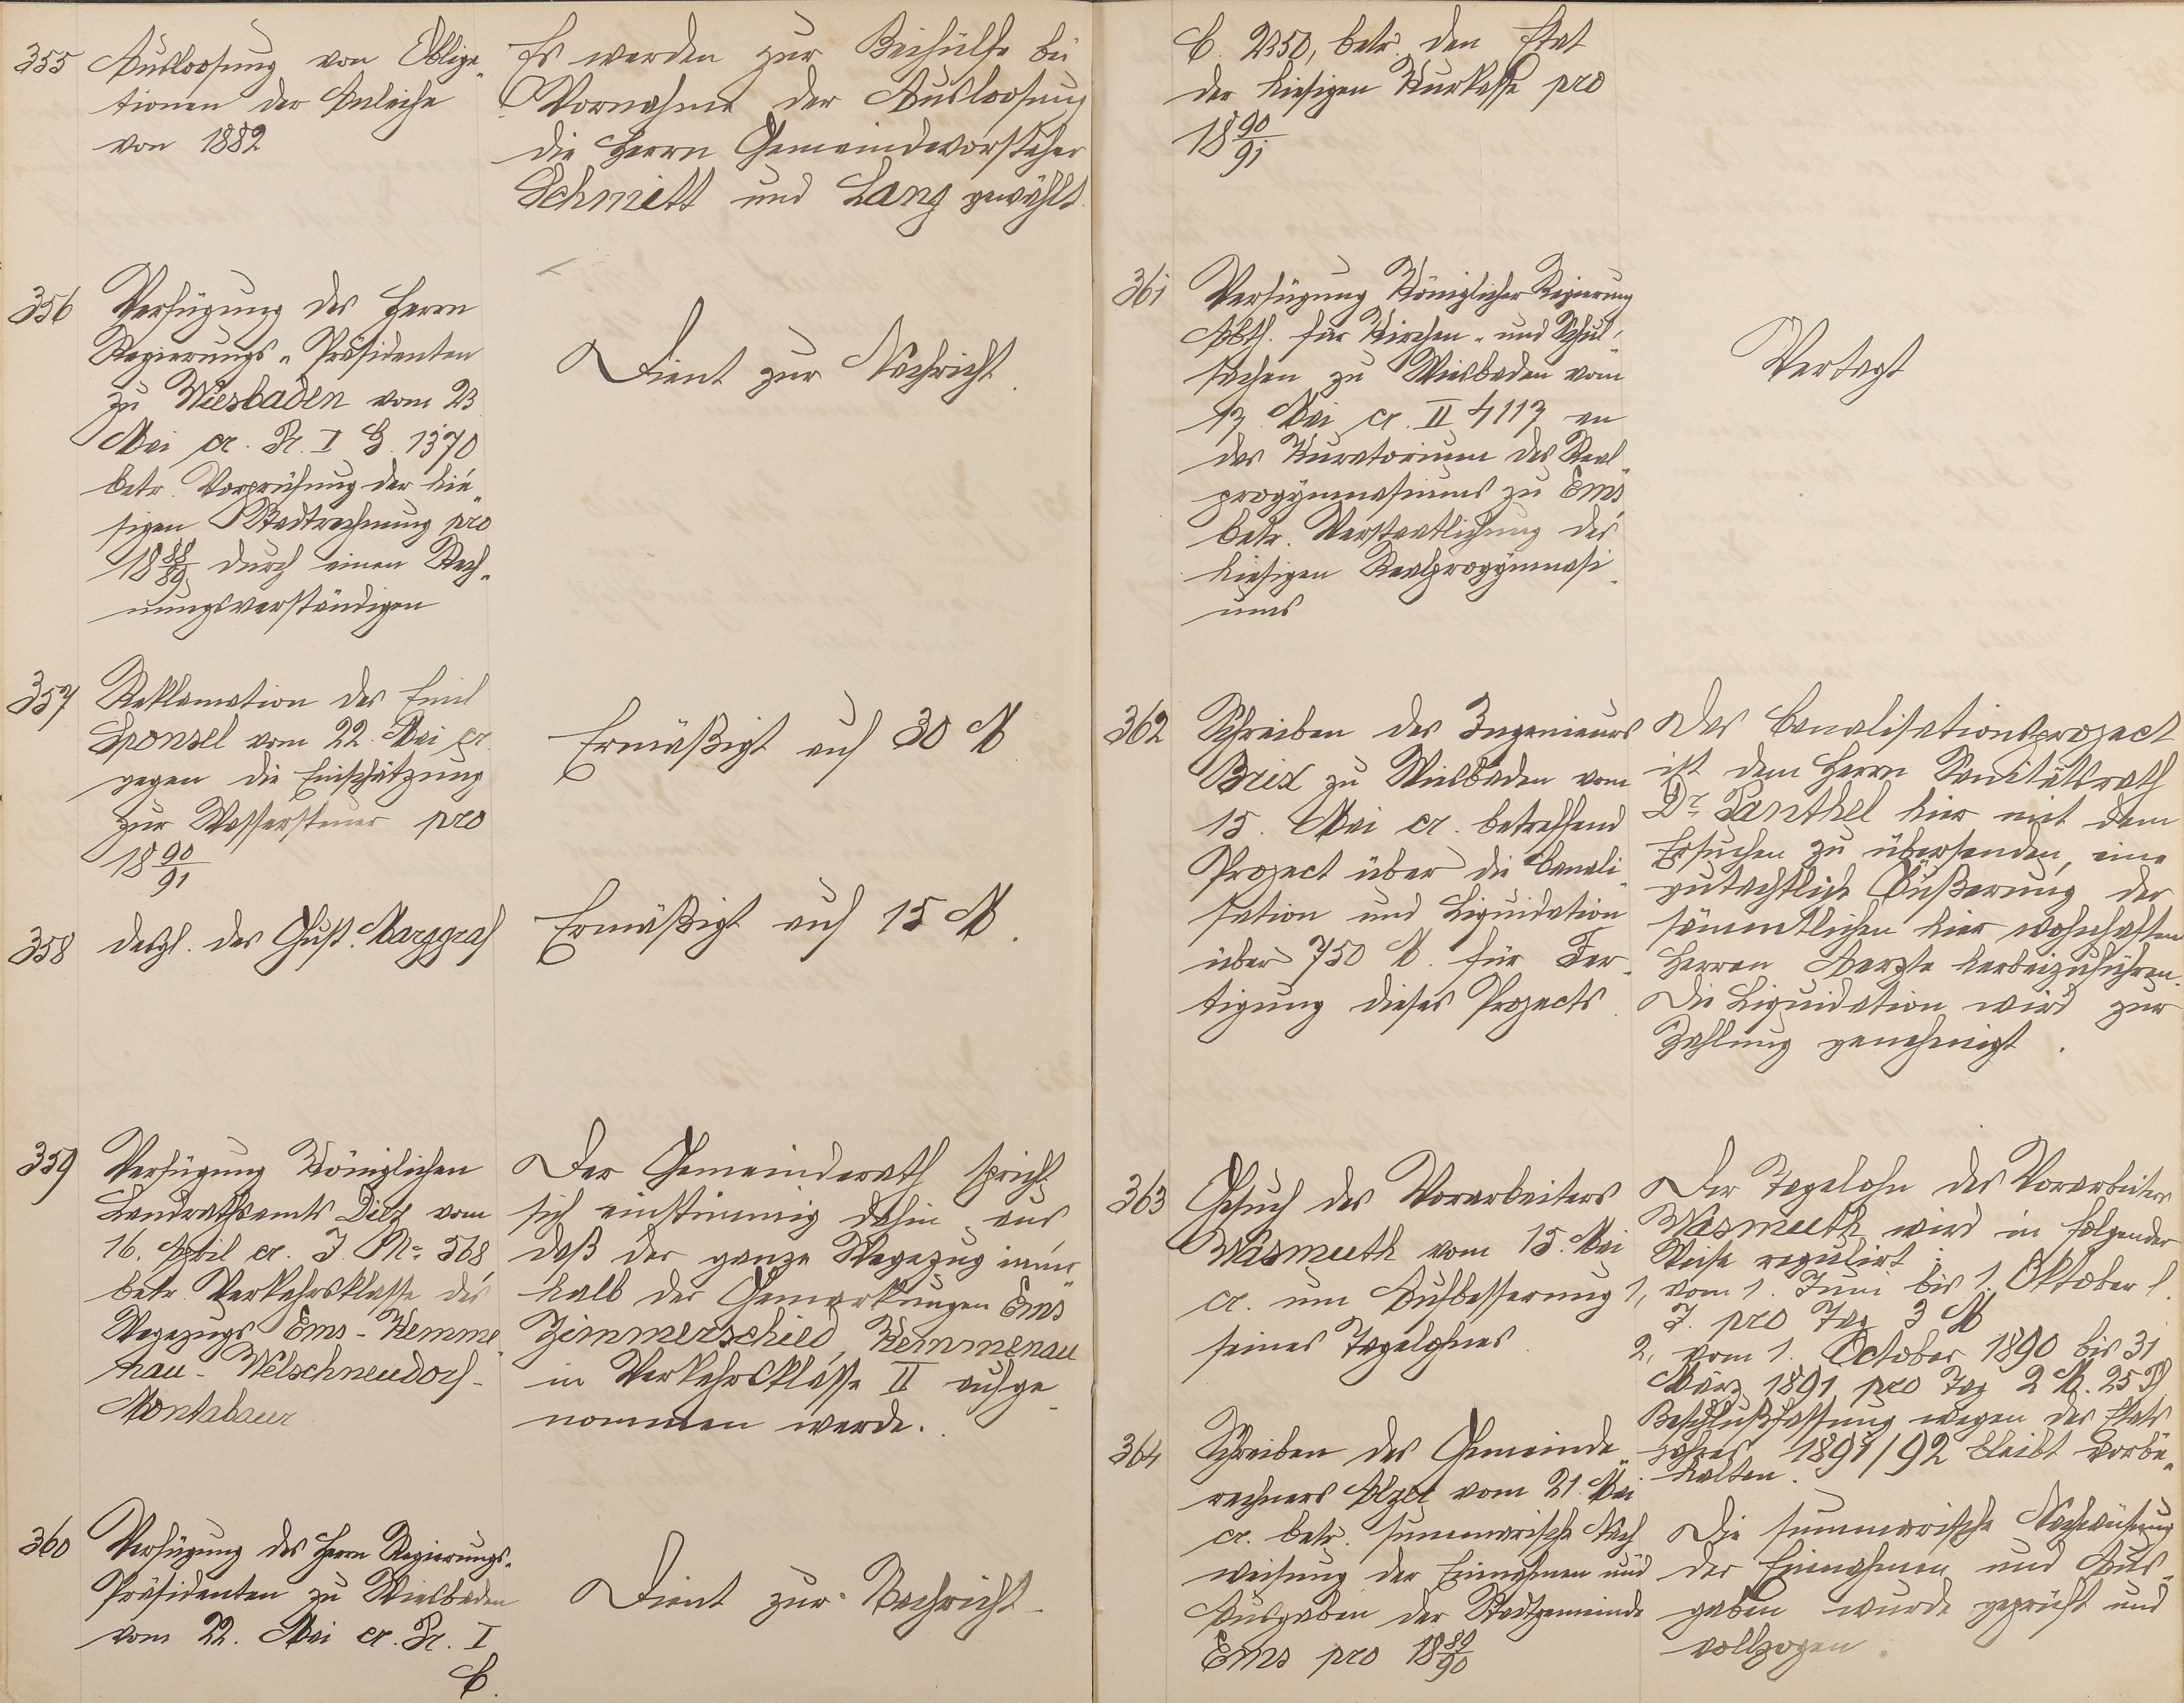 355 Ausloosung von Obliga-
tionen der Anleihe
von 1882
Es werden zur Beihülfe bei
Vornahme der Ausloosung
die Herrn Gemeindevorsteher
Schmitt und Lang gewählt.
356 Verfügung des Herrn
Regierungs-Präsidenten
zu Wiesbaden vom 23.
Mai cr. Pr. I G. 1370
betr. Vorprüfung der hie-
sigen Stadtrechnung pro
18 88/89 durch einen Rech-
nungsverständigen
Dient zur Nachricht.
357 Reklamation des Emil
Sponsel vom 22. Mai cr.
gegen die Einschätzung
zur Wassersteuer pro
18 90/91
Ermäßigt auf 30 M
358 desgl. des Gust. Marggraf
Ermäßigt auf 15 M.
359 Verfügung Königlichen
Landrathsamts Diez vom
16. April cr. J. No 568
betr. Verkehrsklasse des
Wegezugs Ems-Kemme-
nau-Welschneudorf-
Montabaur
Der Gemeinderath spricht
sich einstimmig dahin aus
daß der ganze Wegezug inner-
halb der Gemarkungen Ems
Zimmerschied, Kemmenau
in Verkehrsklasse II aufge-
nommen werde.
360 Verfügung des Herrn Regierungs-
Präsidenten zu Wiesbaden
vom 22. Mai cr. Pr. I
C.
Dient zur Nachricht.
C. 2350, betr. den Etat
der hiesigen Kurkasse pro
18 90/91
361 Verfügung Königlicher Regierung
Abth. für Kirchen- und Schul-
sachen zu Wiesbaden vom
17. Mai cr. II 4117 an
das Kuratorium des Real-
progymnasiums zu Ems
betr. Verstaatlichung des
hiesigen Realprogymnasi-
ums
Vertagt
362 Schreiben des Ingenieurs
Brix zu Wiesbaden vom
15. Mai cr. betreffend
Project über die Canali-
sation und Liquidation
über 750 M. für Fer-
tigung dieses Projects.
Das Canalisationsproject
ist dem Herrn Sanitätsrath
Dr. Panthel hier mit dem
Ersuchen zu übersenden, eine
gutachtlich Äußerung der
sämmtlichen hier wohnhaften
Herren Aerzte herbeizuführen.
Die Liquidation wird zur
Zahlung genehmigt.
363 Gesuch des Vorarbeiters
Wasmuth vom 15. Mai
cr. um Aufbesserung
seines Tagelohnes.
Der Tagelohn des Vorarbeiters
Wasmuth wird in folgender
Weise regulirt:
1, vom 1. Juni bis 1. Oktober l.
J. pro Tag 3 M
2, vom 1. October 1890 bis 31
März 1891 pro Tag 2 M. 25 Pf
Beschlußfassung wegen des Etats
jahres 1891/92 bleibt vorbe-
halten.
364 Schreiben des Gemeinde-
rechners vom 21. Mai
cr. betr. summarische Nach
weisung der Einnahmen und
Ausgaben der Stadtgemeinde
Ems pro 18 89/90
Die summarische Nachweisung
der Einnahmen und Aus-
gaben wurde geprüft und
vollzogen.